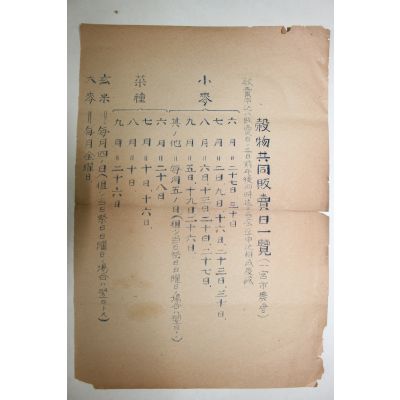 穀物共同販賣日一覽(一宮市農會)
小麥
六月=二十七日、三十日
七月=二日、九日、十六日、二十三日、三十日、
八月=六日、十三日、二十日、二十四日、二十七日、
九月=五日、十九日、二十六日、
其ノ他=毎月五ノ日(但シ當日祭日日曜日ノ場合ハ翌日)
菜種
六月=二十八日
七月=十日、十六日、
八月=十日
九月=二十六日
玄米=毎月四ノ日(但シ當日祭日日曜日ノ場合ハ翌日)
大麥=毎月金曜日